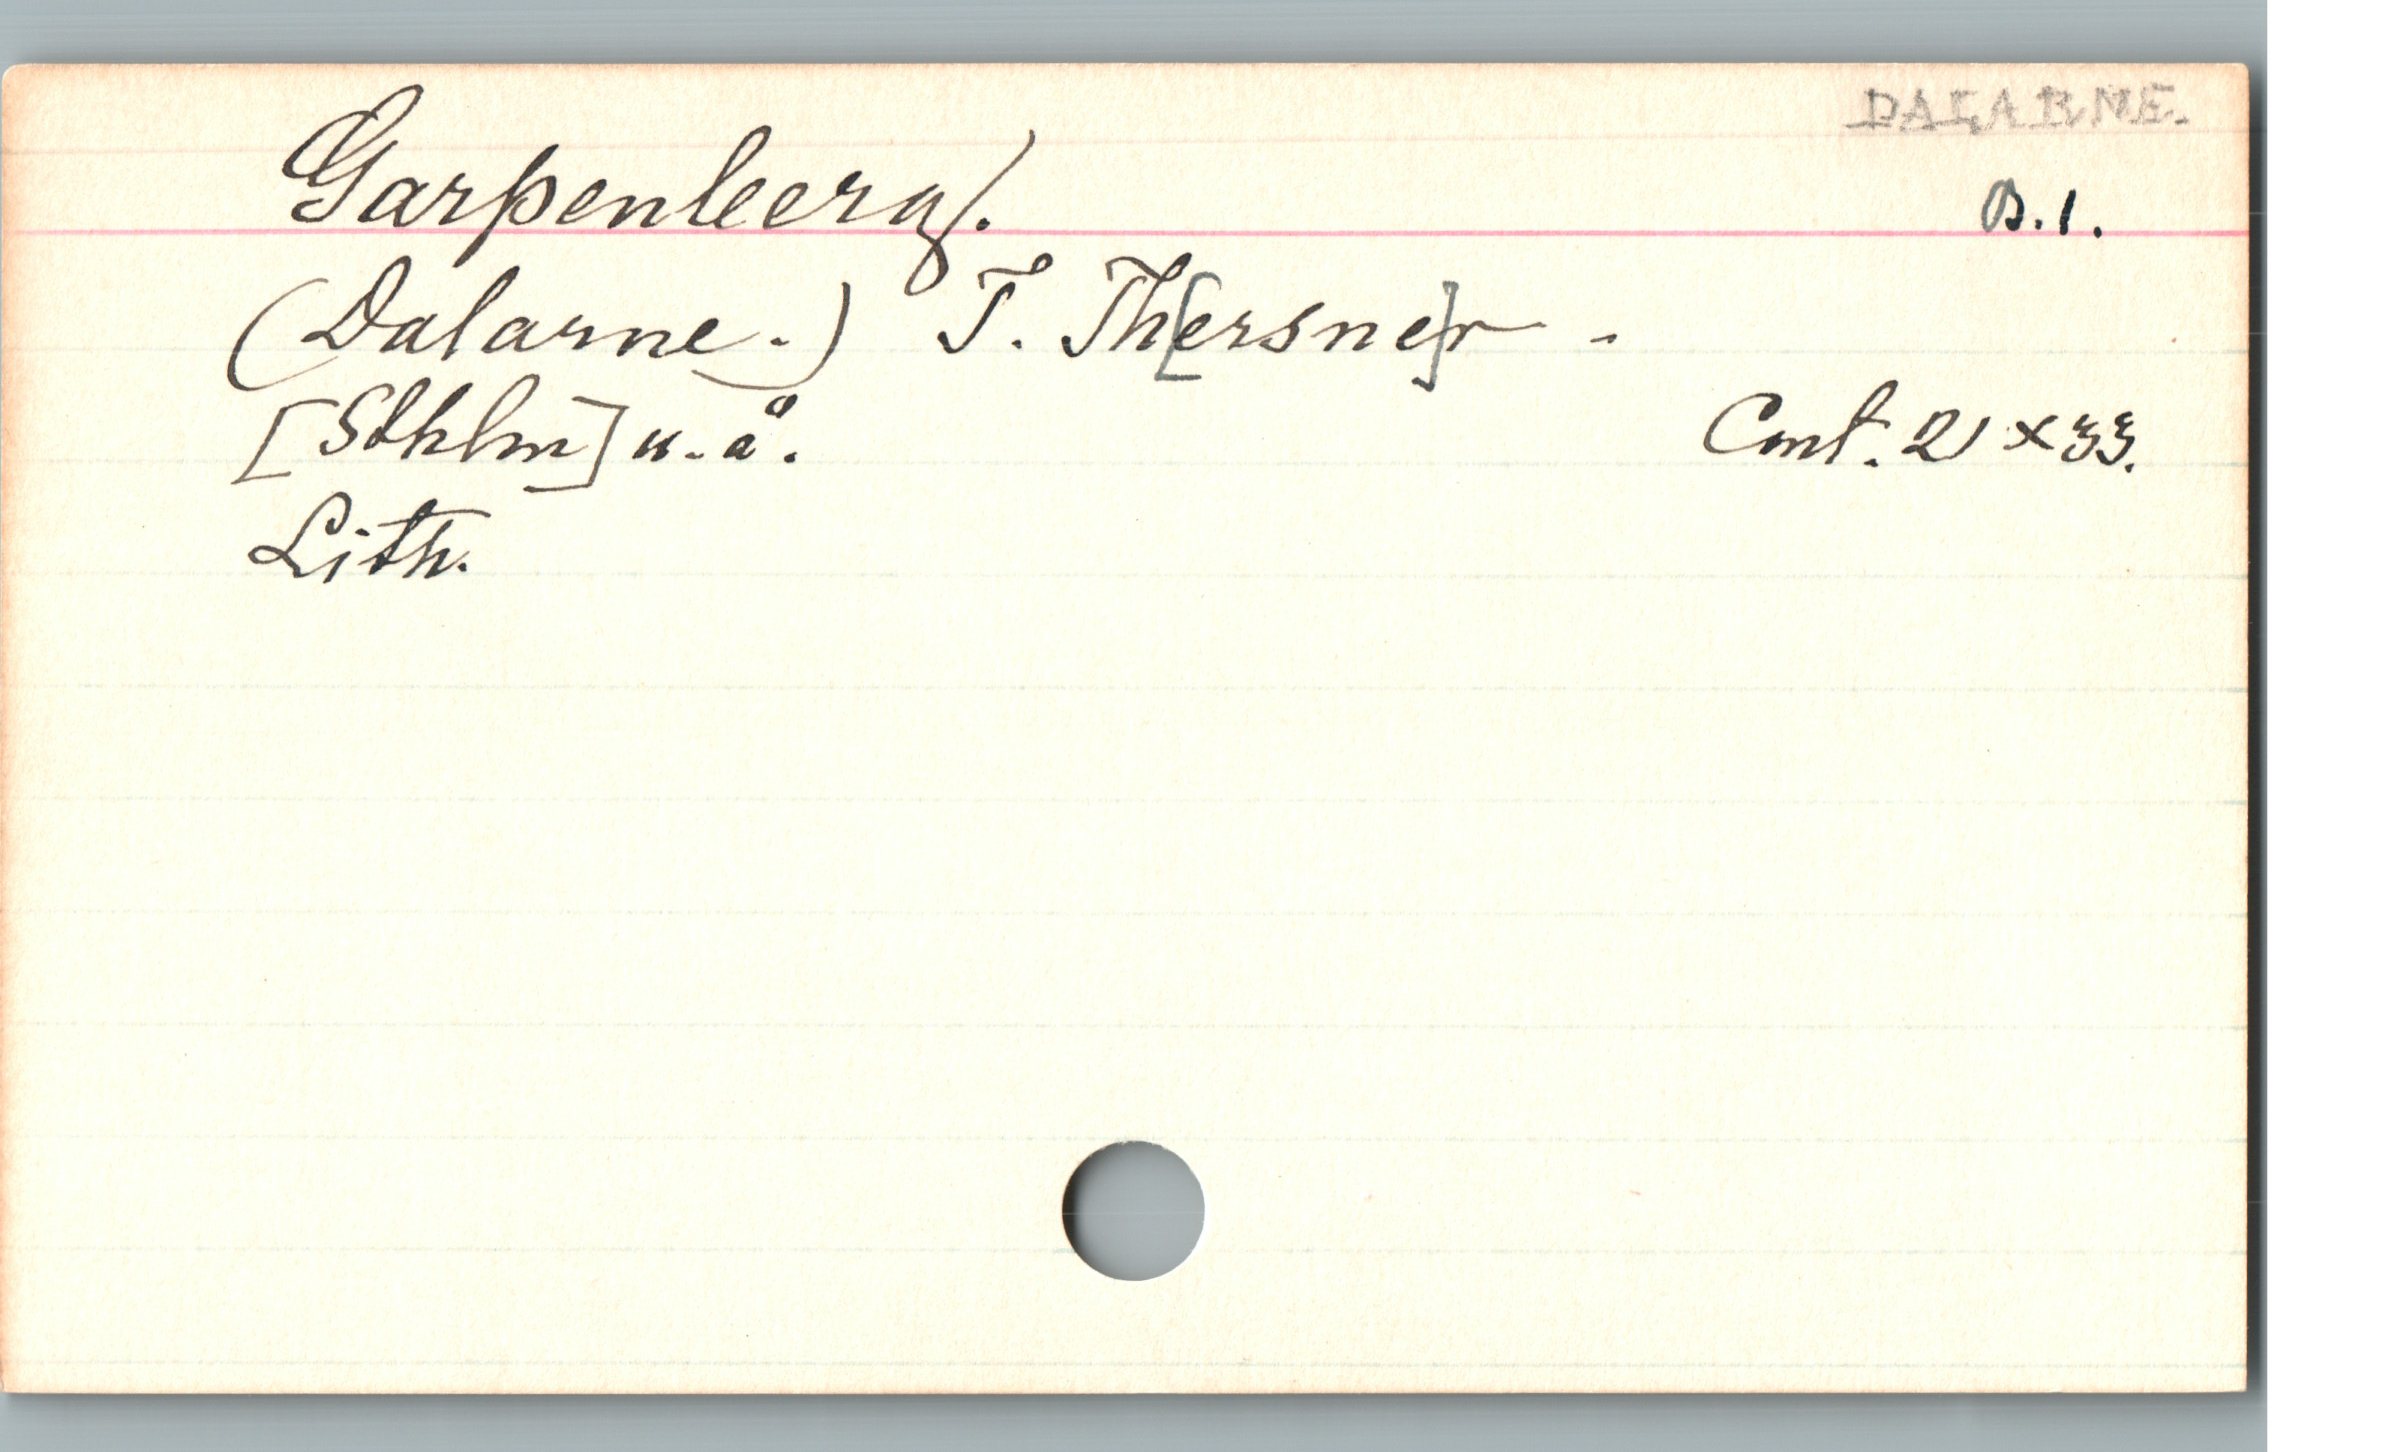 DALARNE.
Garpenberg/. B.1.
(Dalarne.) T. Th[ersne]r -
[Sthlm] u. å. Cmt. 21 x 33.
Lith.